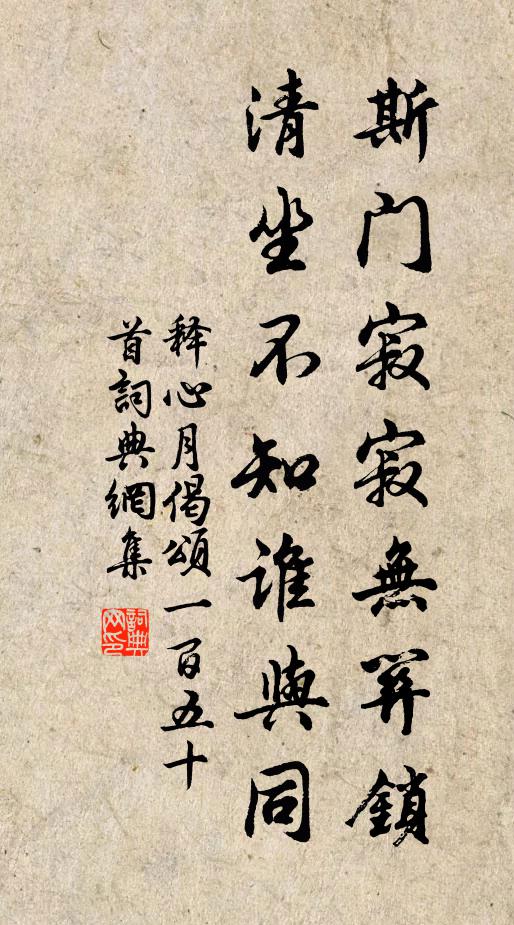 斯门寂寂無關鎖
清坐不知誰與同
释心月偈頌一百五十
首詞典網集
詞典
网印